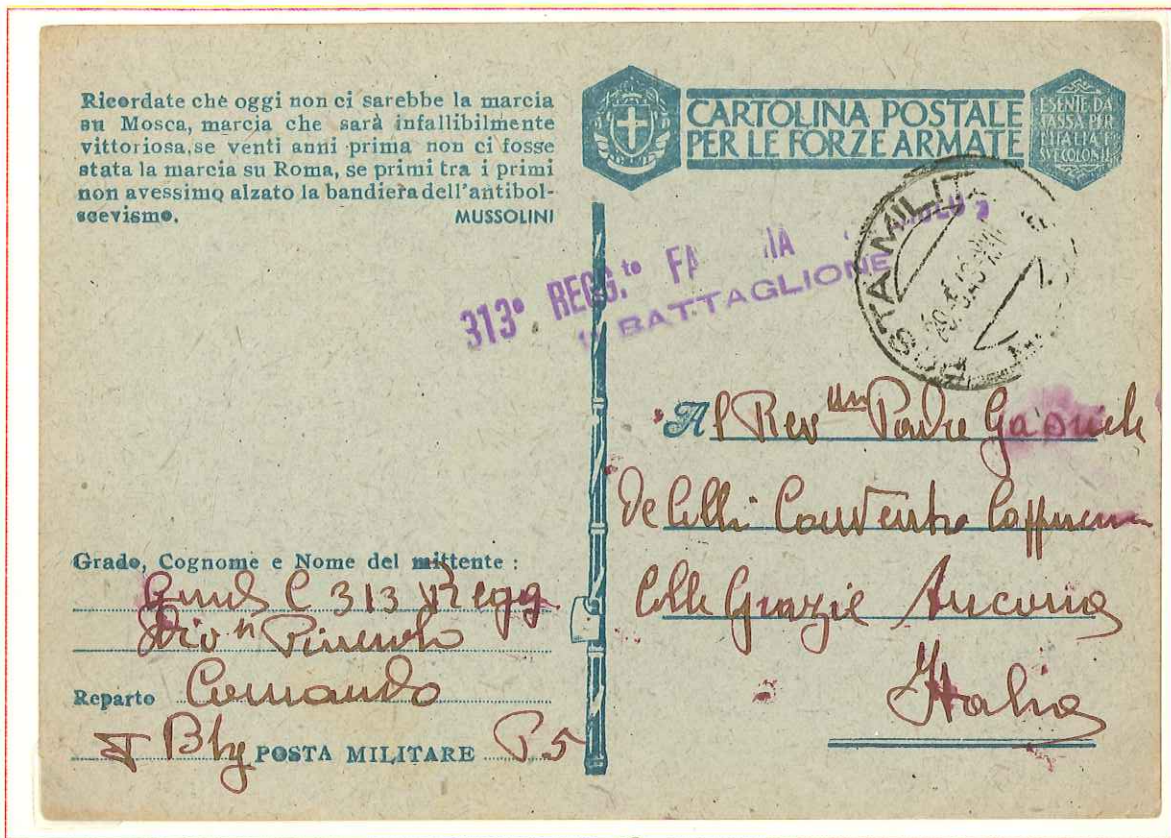 Ricordate che oggi non ci sarebbe la marcia
su Mosca, marcia che sarà infallibilmente
vittoriosa, se venti anni prima non ci fosse
stata la marcia su Roma, se primi tra i primi
non avessimo alzato la bandiera dell'antibol-
scevismo.
MUSSOLINI
CARTOLINA POSTALE
PER LE FORZE ARMATE
ESENTE DA
TASSA PER
L'ITALIA E
SUE COLONIE
313° REGG.to
BATTAGLIONE
POSTA MILIT
Al Rev Padre Gabriele
Convento
Colle Grazie Ancona
Italia
Grado, Cognome e Nome del mittente :
C 313 Regg
Pinerolo
Reparto Comando
Btg POSTA MILITARE